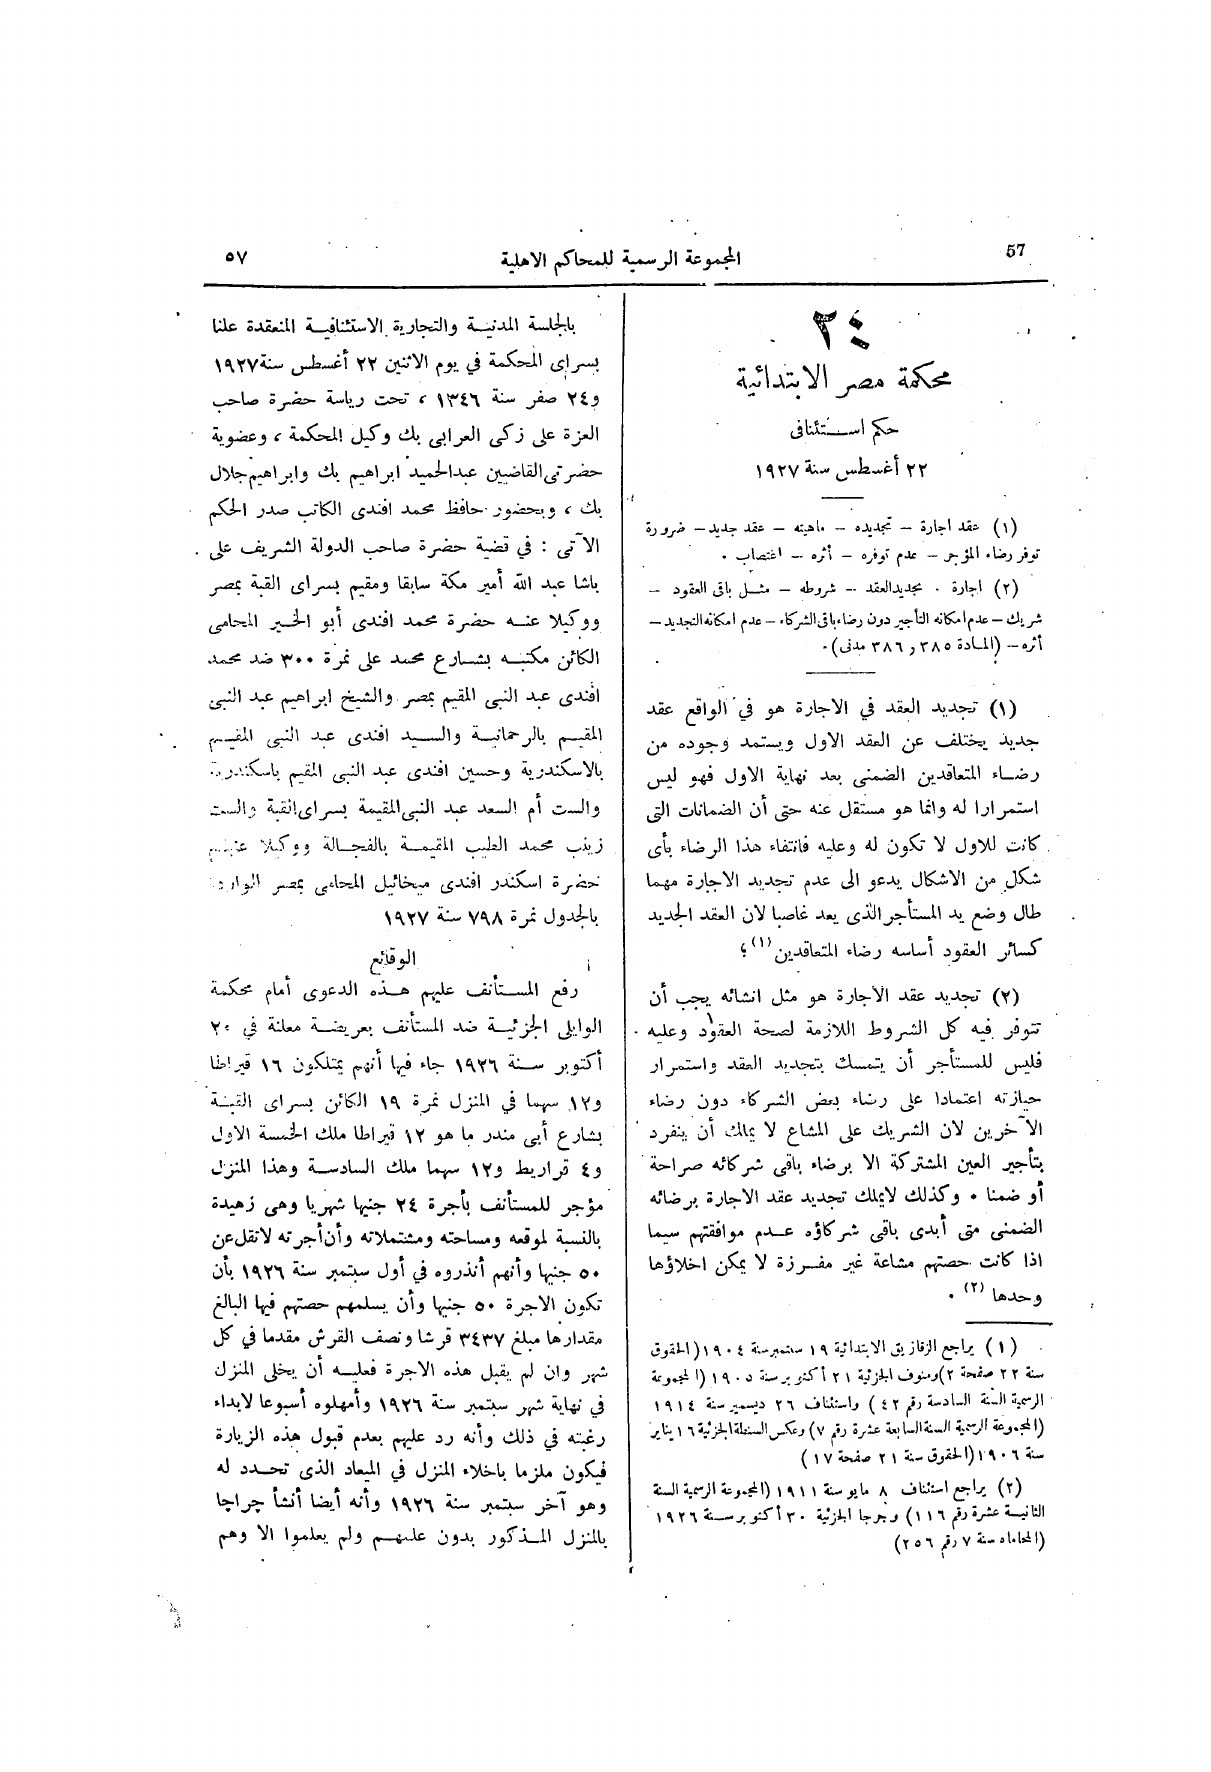 57
المجموعة الرسمية للمحاكم الاهلية
٥٧
٣٤
محكمة مصر الابتدائية
حكم استئنافى
٢٢ أغسطس سنة ١٩٢٧
(١) عقد اجارة – تجديده – ماهيته – عقد جديد – ضرورة
توفر رضاء المؤجر – عدم توفره – أثره – اغتصاب .
(٢) اجارة . تجديد العقد – شروطه – مثل باقى العقود –
شريك – عدم امكانه التأجير دون رضاء باقى الشركاء – عدم امكانه التجديد –
أثره – (المادة ٣٨٥ و ٣٨٦ مدنى) .
(١) تجديد العقد في الاجارة هو في الواقع عقد
جديد يختلف عن العقد الاول ويستمد وجوده من
رضاء المتعاقدين الضمنى بعد نهاية الاول فهو ليس
استمرارا له وانما هو مستقل عنه حتى أن الضمانات التى
كانت للاول لا تكون له وعليه فانتفاء هذا الرضاء بأى
شكل من الاشكال يدعو الى عدم تجديد الاجارة مهما
طال وضع يد المستأجر الذى يعد غاصبا لان العقد الجديد
كسائر العقود أساسه رضاء المتعاقدين (١) ؛
(٢) تجديد عقد الاجارة هو مثل انشائه يجب أن
تتوفر فيه كل الشروط اللازمة لصحة العقود وعليه
فليس للمستأجر أن يتمسك بتجديد العقد واستمرار
حيازته اعتمادا على رضاء بعض الشركاء دون رضاء
الآخرين لان الشريك على المشاع لا يملك أن ينفرد
بتأجير العين المشتركة الا برضاء باقى شركائه صراحة
أو ضمنا . وكذلك لا يملك تجديد عقد الاجارة برضائه
الضمنى متى أبدى باقى شركاؤه عدم موافقتهم سيما
اذا كانت حصتهم مشاعة غير مفرزة لا يمكن اخلاؤها
وحدها (٢) .
(١) يراجع الزقازيق الابتدائية ١٩ سبتمبر سنة ١٩٠٤ (الحقوق
سنة ٢٢ صفحة ٢) ومنوف الجزئية ٢١ أكتوبر سنة ١٩٠٥ (المجموعة
الرسمية السنة السادسة رقم ٤٢) واستئناف ٢٦ ديسمبر سنة ١٩١٤
(المجموعة الرسمية السنة السابعة عشرة رقم ٧) وعكس السنطة الجزئية ١٦ يناير
سنة ١٩٠٦ (الحقوق سنة ٢١ صفحة ١٧)
(٢) يراجع استئناف ٨ مايو سنة ١٩١١ (المجموعة الرسمية السنة
الثانية عشرة رقم ١١٦) وجرجا الجزئية ٣٠ أكتوبر سنة ١٩٢٦
(المحاماه سنة ٧ رقم ٢٥٦)
بالجلسة المدنية والتجارية الاستئنافية المنعقدة علنا
بسراى المحكمة في يوم الاثنين ٢٢ أغسطس سنة ١٩٢٧
و٢٤ صفر سنة ١٣٤٦ ، تحت رياسة حضرة صاحب
العزة على زكى العرابى بك وكيل المحكمة ، وعضوية
حضرتى القاضيين عبد الحميد ابراهيم بك وابراهيم جلال
بك ، وبحضور حافظ محمد افندى الكاتب صدر الحكم
الآتى : في قضية حضرة صاحب الدولة الشريف على
باشا عبد الله أمير مكة سابقا ومقيم بسراى القبة بمصر
ووكيلا عنه حضرة محمد افندى أبو الخير المحامى
الكائن مكتبه بشارع محمد على نمرة ٣٠٠ ضد محمد
افندى عبد النبى المقيم بمصر والشيخ ابراهيم عبد النبى
المقيم بالرحمانية والسيد افندى عبد النبى المقيم
بالاسكندرية وحسين افندى عبد النبى المقيم باسكندرية
والست أم السعد عبد النبى المقيمة بسراى القبة والست
زينب محمد الطيب المقيمة بالفجالة ووكيلا عنهم
حضرة اسكندر افندى ميخائيل المحامى بمصر الوارد
بالجدول نمرة ٧٩٨ سنة ١٩٢٧
الوقائع
رفع المستأنف عليهم هذه الدعوى أمام محكمة
الوايلى الجزئية ضد المستأنف بعريضة معلنة في ٢٠
أكتوبر سنة ١٩٢٦ جاء فيها أنهم يمتلكون ١٦ قيراطا
و١٢ سهما في المنزل نمرة ١٩ الكائن بسراى القبة
بشارع أبى مندر ما هو ١٢ قيراطا ملك الخمسة الاول
و٤ قراريط و١٢ سهما ملك السادسة وهذا المنزل
مؤجر للمستأنف بأجرة ٢٤ جنيها شهريا وهى زهيدة
بالنسبة لموقعه ومساحته ومشتملاته وأن أجرته لا تقل عن
٥٠ جنيها وأنهم أنذروه في أول سبتمبر سنة ١٩٢٦ بأن
تكون الاجرة ٥٠ جنيها وأن يسلمهم حصتهم فيها البالغ
مقدارها مبلغ ٣٤٣٧ قرشا ونصف القرش مقدما في كل
شهر وان لم يقبل هذه الاجرة فعليه أن يخلى المنزل
في نهاية شهر سبتمبر سنة ١٩٢٦ وأمهلوه أسبوعا لابداء
رغبته في ذلك وأنه رد عليهم بعدم قبول هذه الزيارة
فيكون ملزما باخلاء المنزل في الميعاد الذى تحدد له
وهو آخر سبتمبر سنة ١٩٢٦ وأنه أيضا أنشأ جراچا
بالمنزل المذكور بدون علمهم ولم يعلموا الا وهم